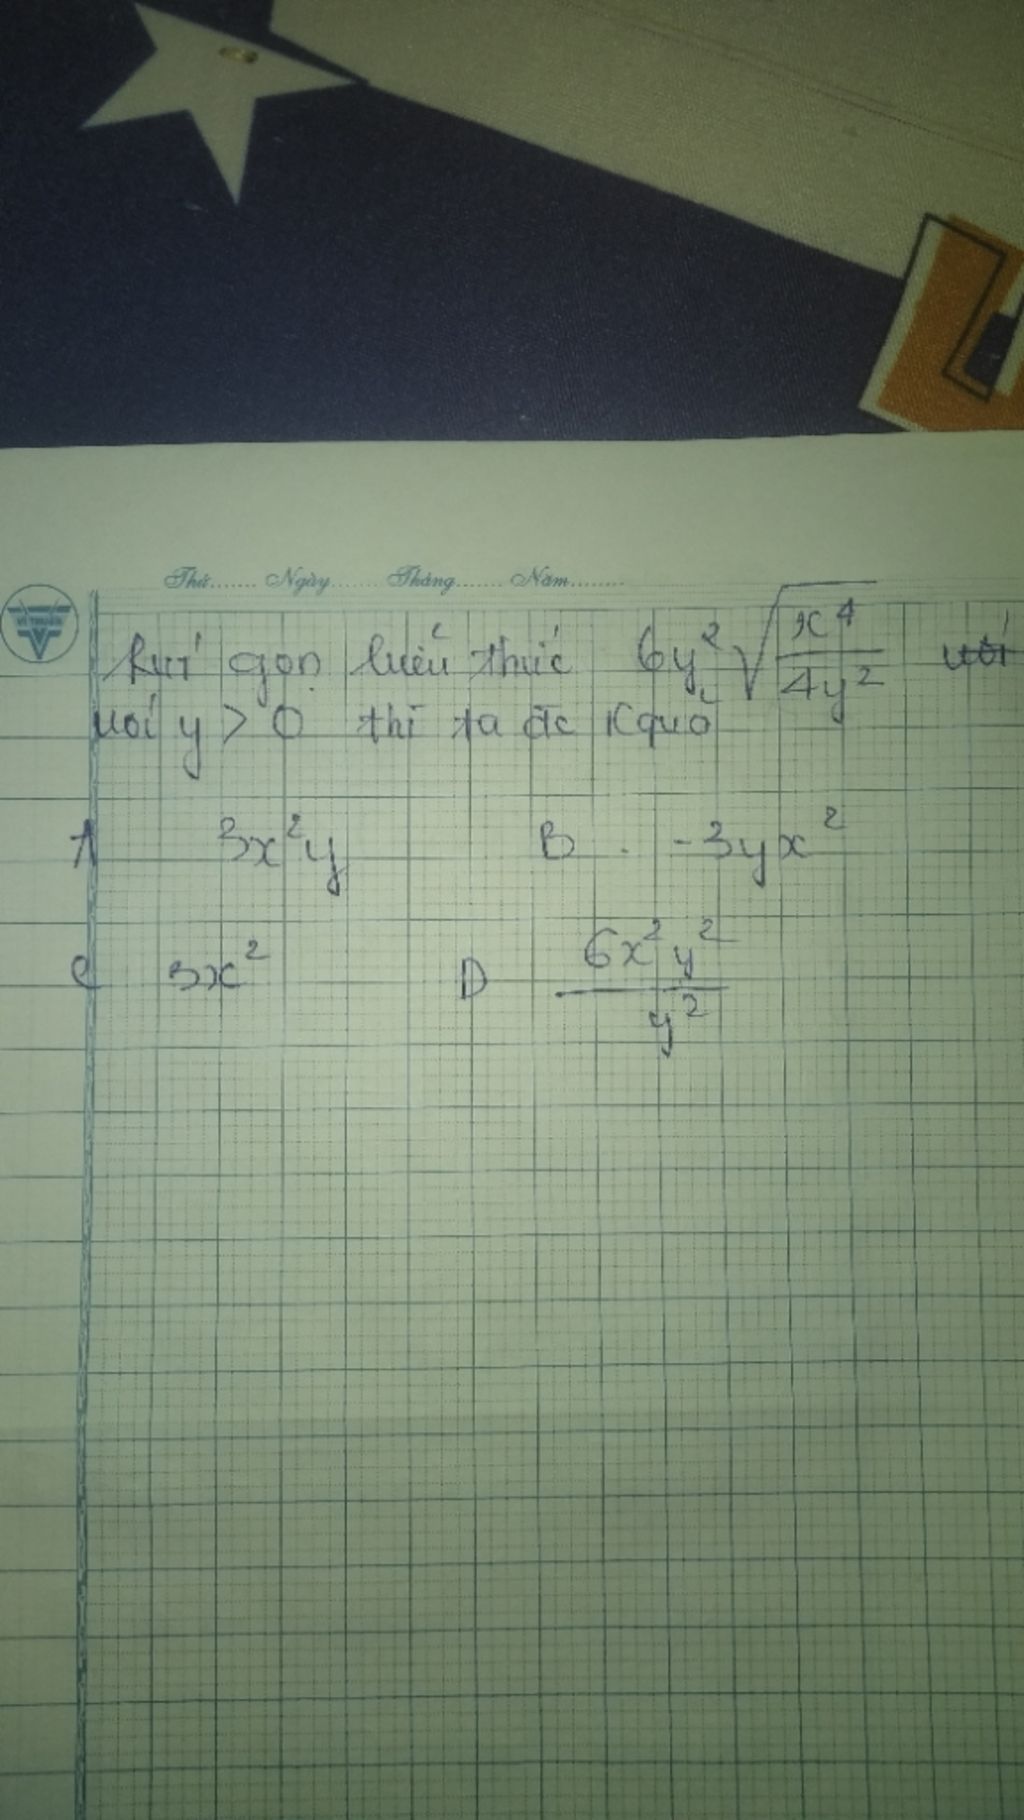 Thứ....... Ngày....... Tháng....... Năm.......
VĨ TUYẾN
Rút gọn biểu thức 6y² √(x⁴/4y²) với
với y > 0 thì ta đc Kquả
A 3x²y B. -3yx²
C 3x² D 6x²y²/y²